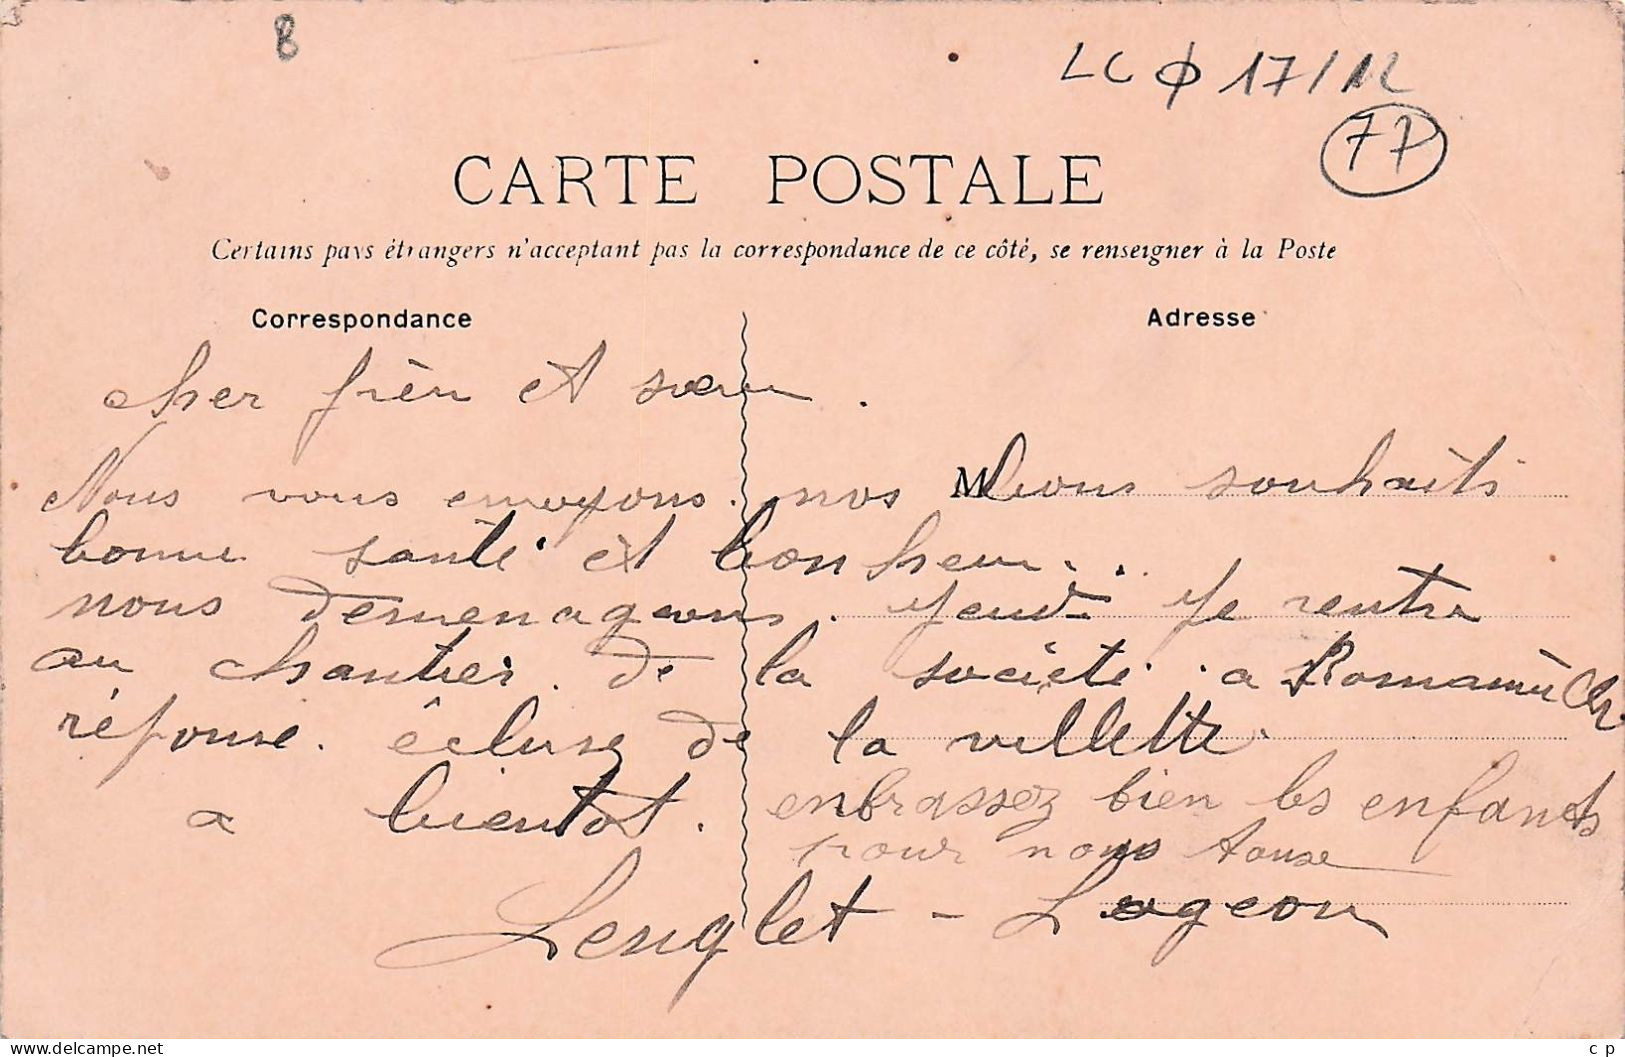 B
LC φ 17/12
77
CARTE POSTALE
Certains pays étrangers n'acceptant pas la correspondance de ce côté, se renseigner à la Poste
Correspondance
Adresse
cher frère et sœur.
M
Nous vous envoyons. nos bons souhaits
bonne santé et bonheur.
nous demenageons. jeudi je rentre
au chantier de la société a
réponse. écluse de la villette.
a bientot. enbrassez bien les enfants
pour nous touse
Lenglet - Logeon
c p
www.delcampe.net